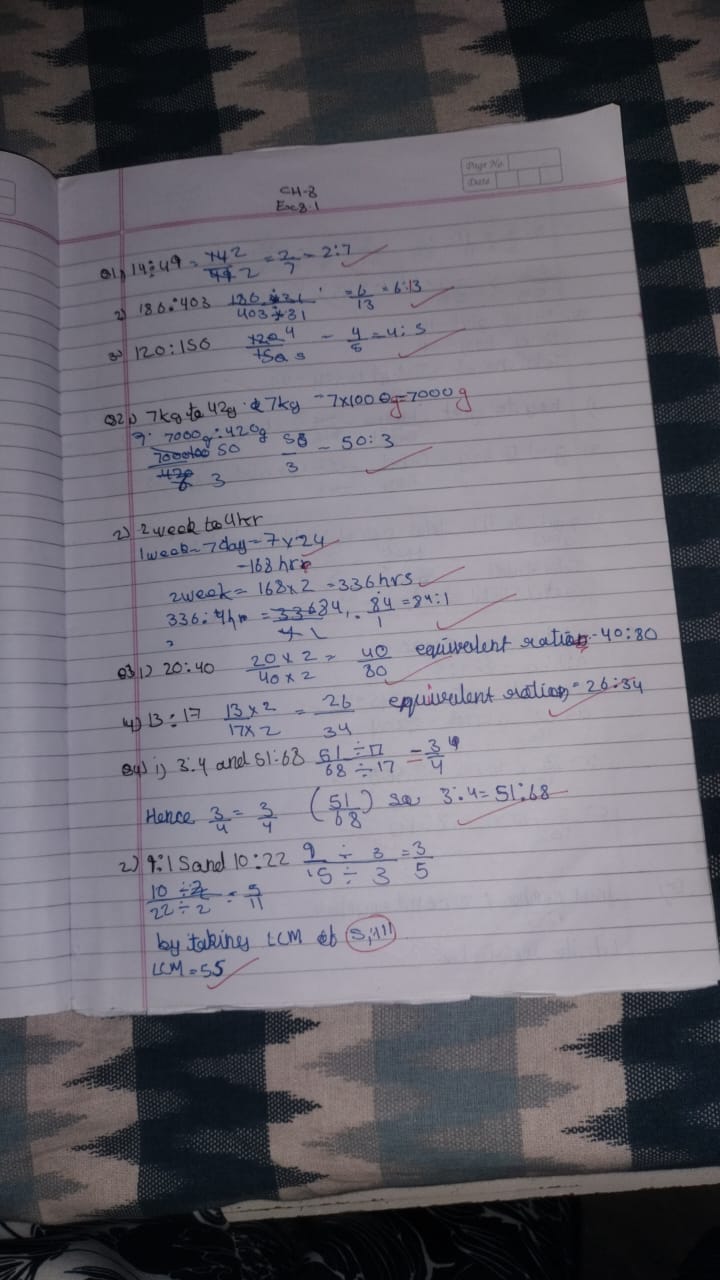 Page No.
Date
CH-8
Ex 8.1
Q1) 14:49 = 14 2 / 49 = 2/7 = 2:7
2) 186:403 186÷31 / 403÷31 = 6/13 = 6:13
3) 120:150 120 4 / 150 5 = 4/5 = 4:5
Q2) 7kg to 42g 7kg = 7x1000g = 7000g
7000g : 420g
7000 50 / 420 3 50/3 = 50:3
2) 2 week to 4hr
1 week = 7 day = 7x24
= 168 hr
2 week = 168x2 = 336 hrs
336 : 4hr = 336 84 / 4 1 84/1 = 84:1
Q3 1) 20:40 20x2 / 40x2 = 40/80 equivalent ratio = 40:80
4) 13:17 13x2 / 17x2 = 26/34 equivalent ratio = 26:34
Q4) i) 3:4 and 51:68 51÷17 / 68÷17 = 3/4
Hence 3/4 = 3/4 (51/68) so 3:4 = 51:68
2) 9:15 and 10:22 9÷3 / 15÷3 = 3/5
10÷2 / 22÷2 = 5/11
by taking LCM of 5,11
LCM = 55